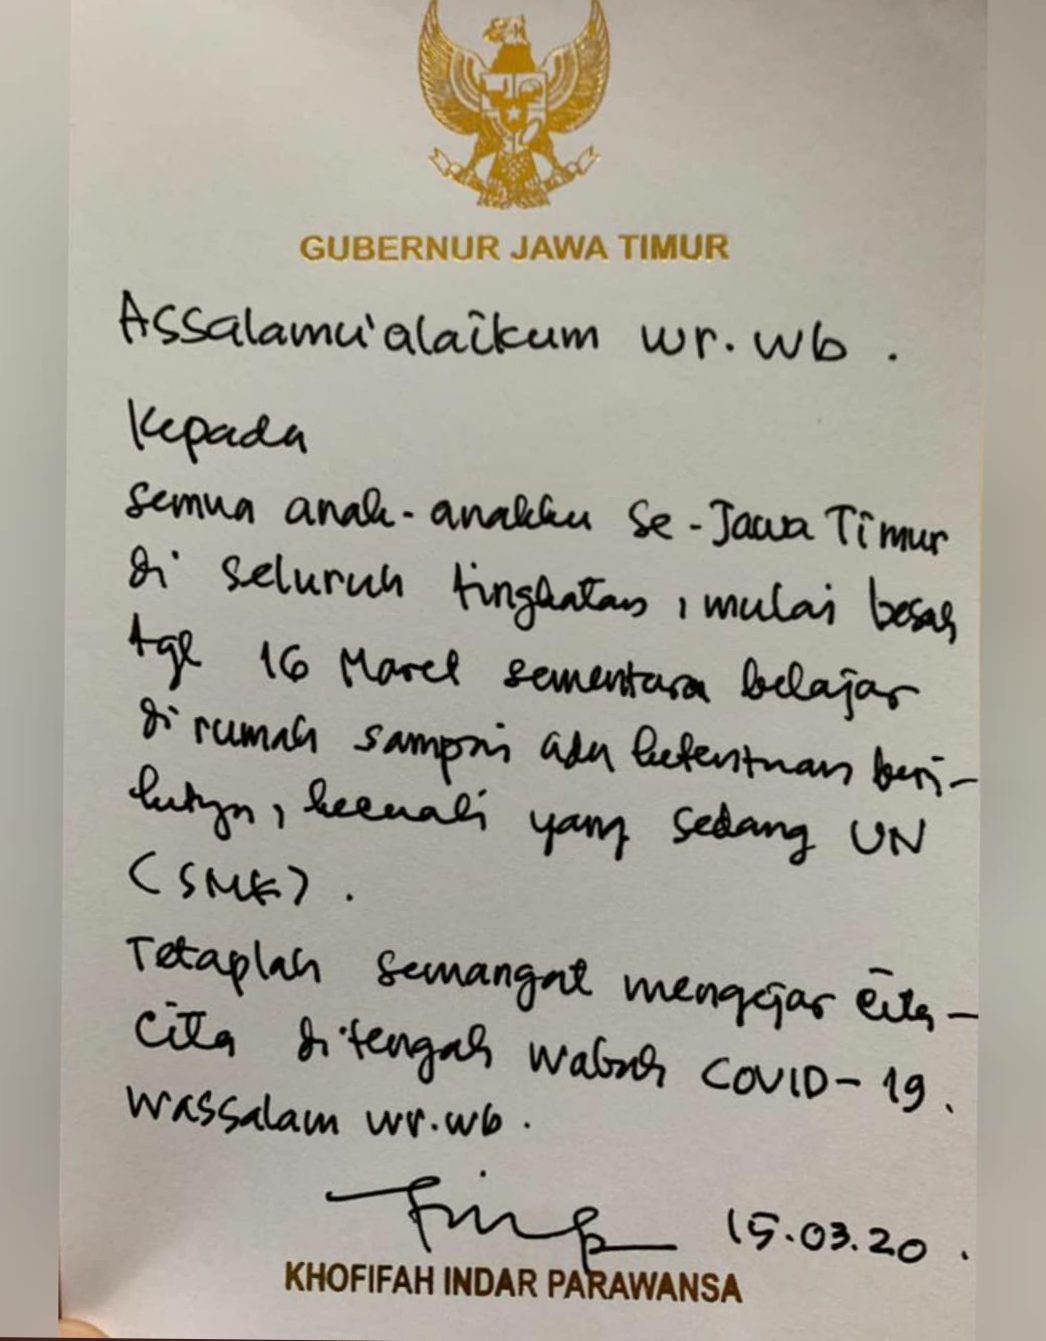 GUBERNUR JAWA TIMUR
Assalamu'alaikum wr. wb.
Kepada
semua anak-anakku se-Jawa Timur
di seluruh tingkatan, mulai besok
tgl 16 Maret sementara belajar
di rumah sampai ada ketentuan beri-
kutnya, kecuali yang sedang UN
(SMK).
Tetaplah semangat mengejar cita-
cita ditengah wabah COVID-19.
Wassalam wr.wb.
15.03.20.
KHOFIFAH INDAR PARAWANSA